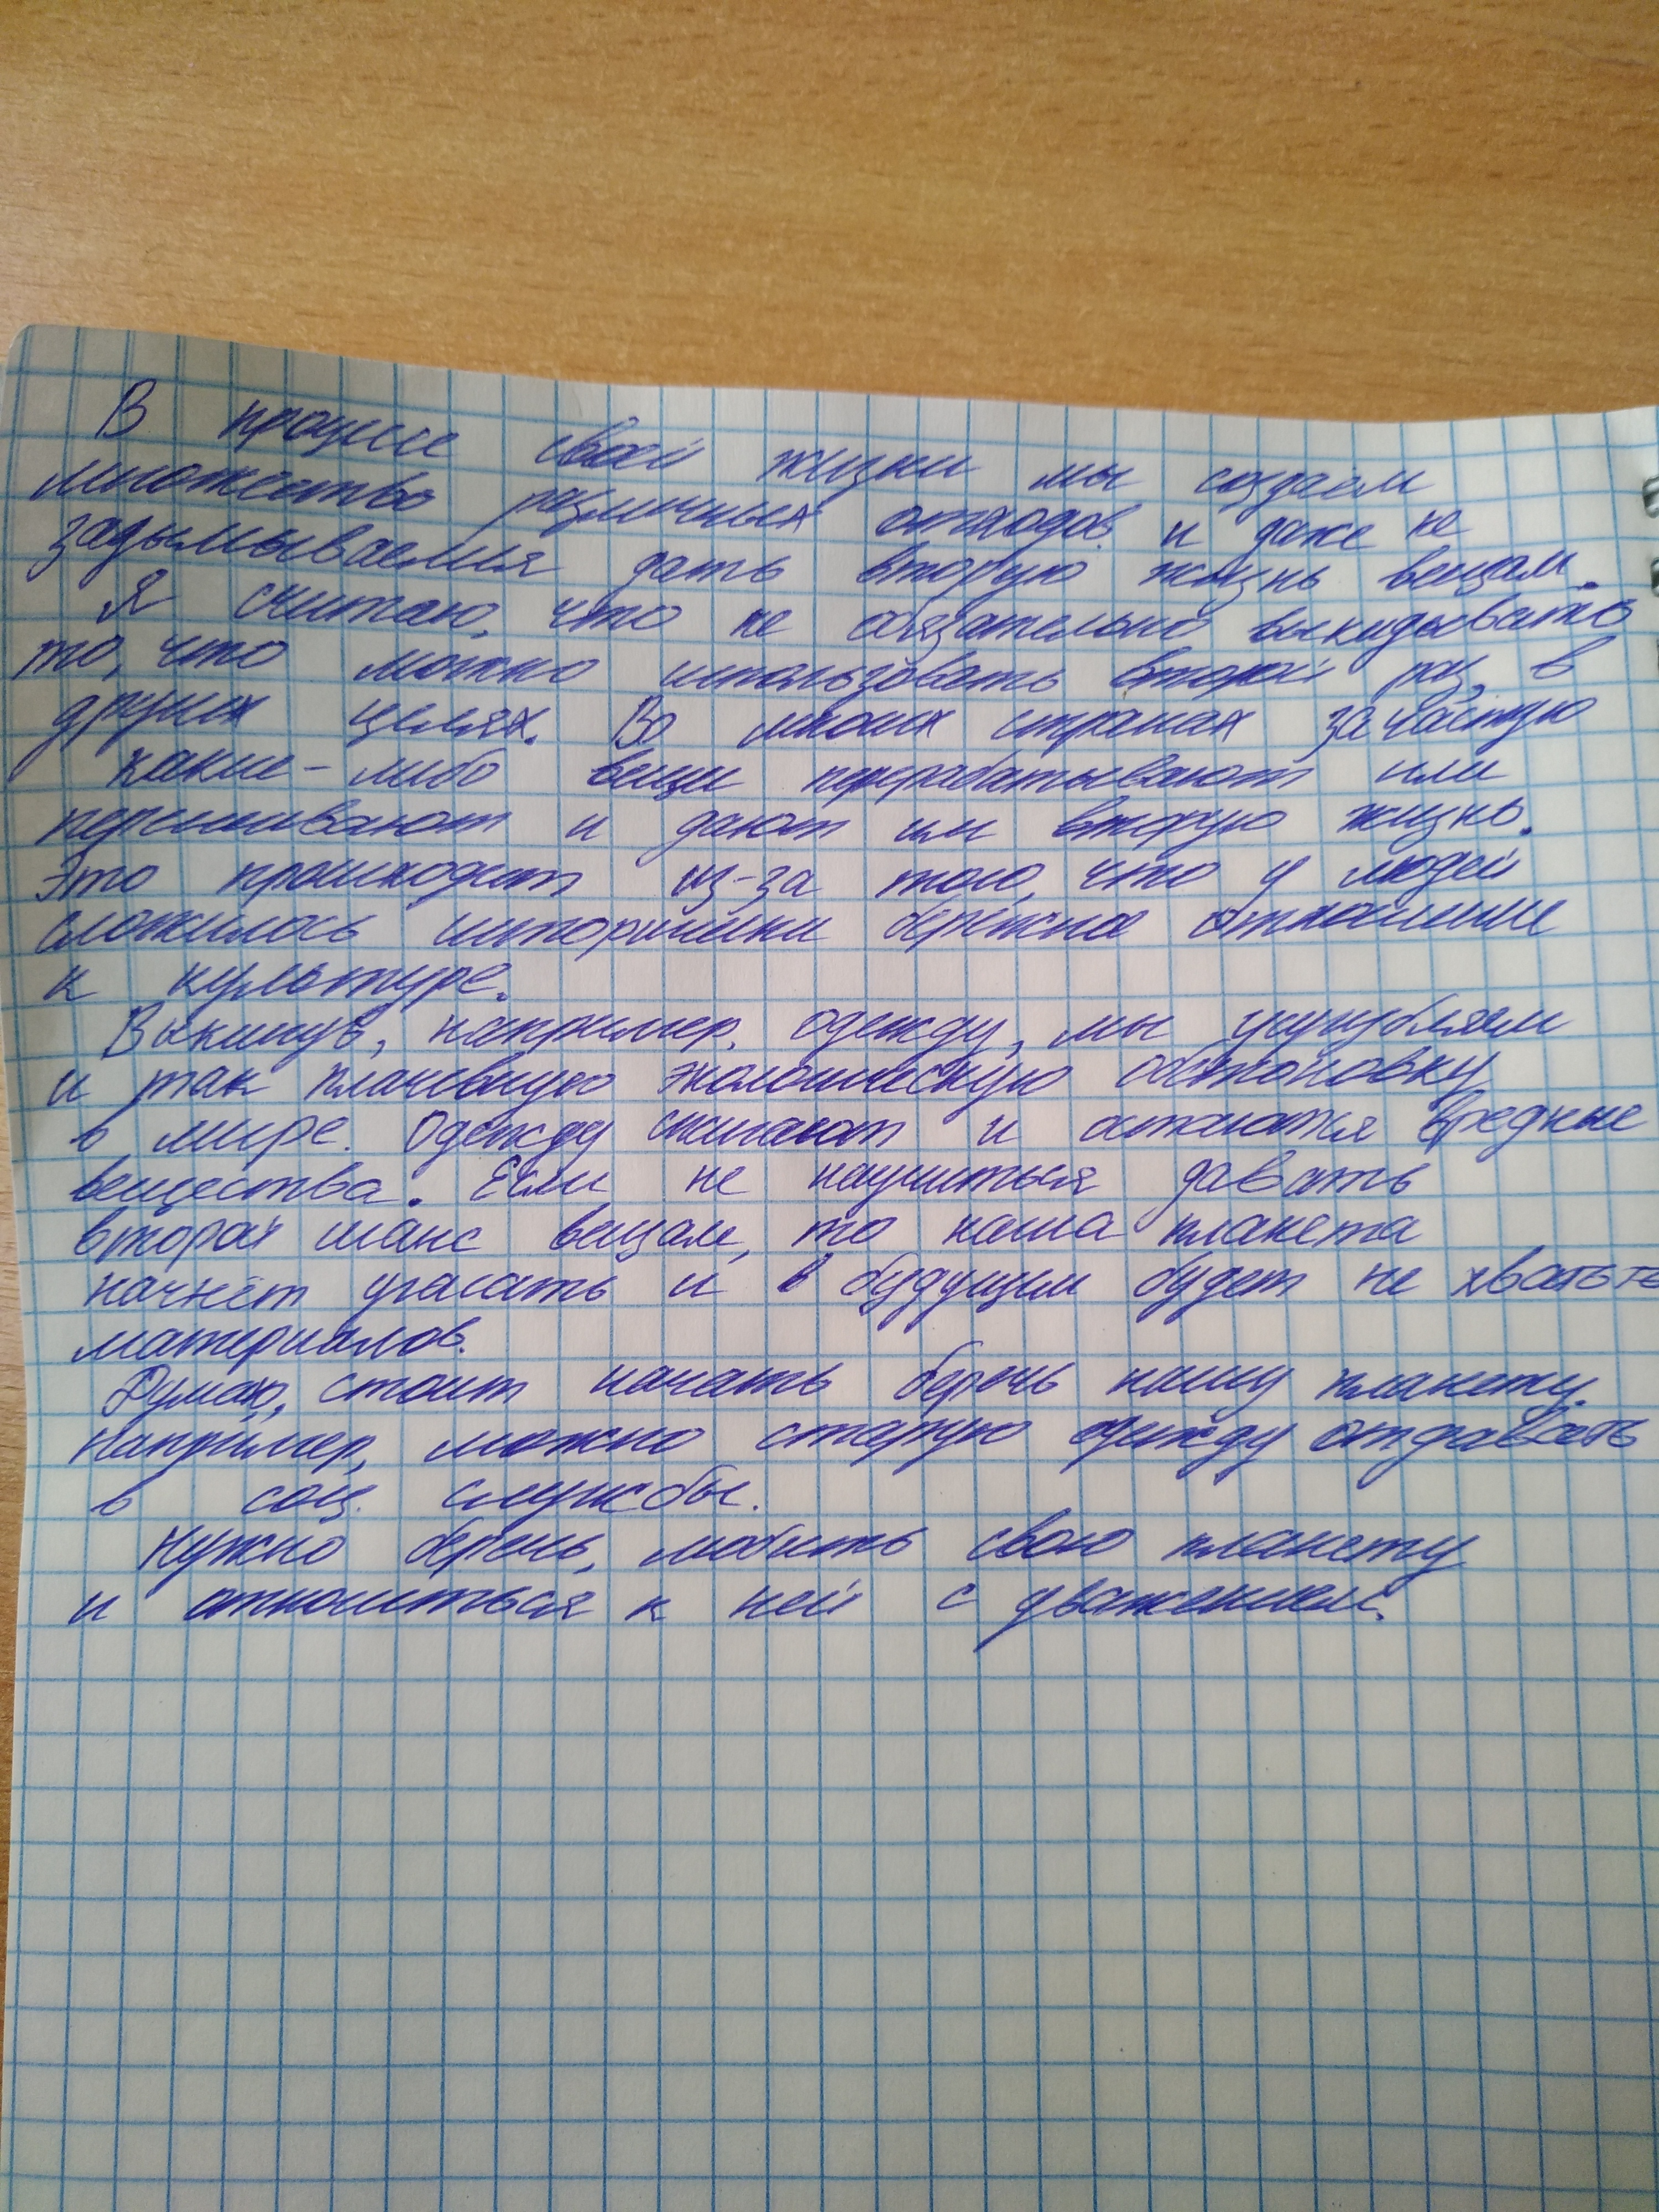 В процессе своей жизни мы создаём
множество различных отходов и даже не
задумываемся дать вторую жизнь вещам.
Я считаю, что не обязательно выкидывать
то, что можно использовать второй раз, в
других целях. Во многих странах зачастую
какие-либо вещи перерабатывают или
перешивают и дают им вторую жизнь.
Это происходит из-за того, что у людей
сложилось исторически бережное отношение
к культуре.
Выкинув, например, одежду, мы усугубляем
и так плачевную экологическую обстановку
в мире. Одежду сжигают и остаются вредные
вещества. Если не научиться давать
второй шанс вещам, то наша планета
начнёт угасать и в будущем будет не хватать
материалов.
Думаю, стоит начать беречь нашу планету.
Например, можно старую одежду отдавать
в соц. службы.
Нужно беречь, любить свою планету
и относиться к ней с уважением.